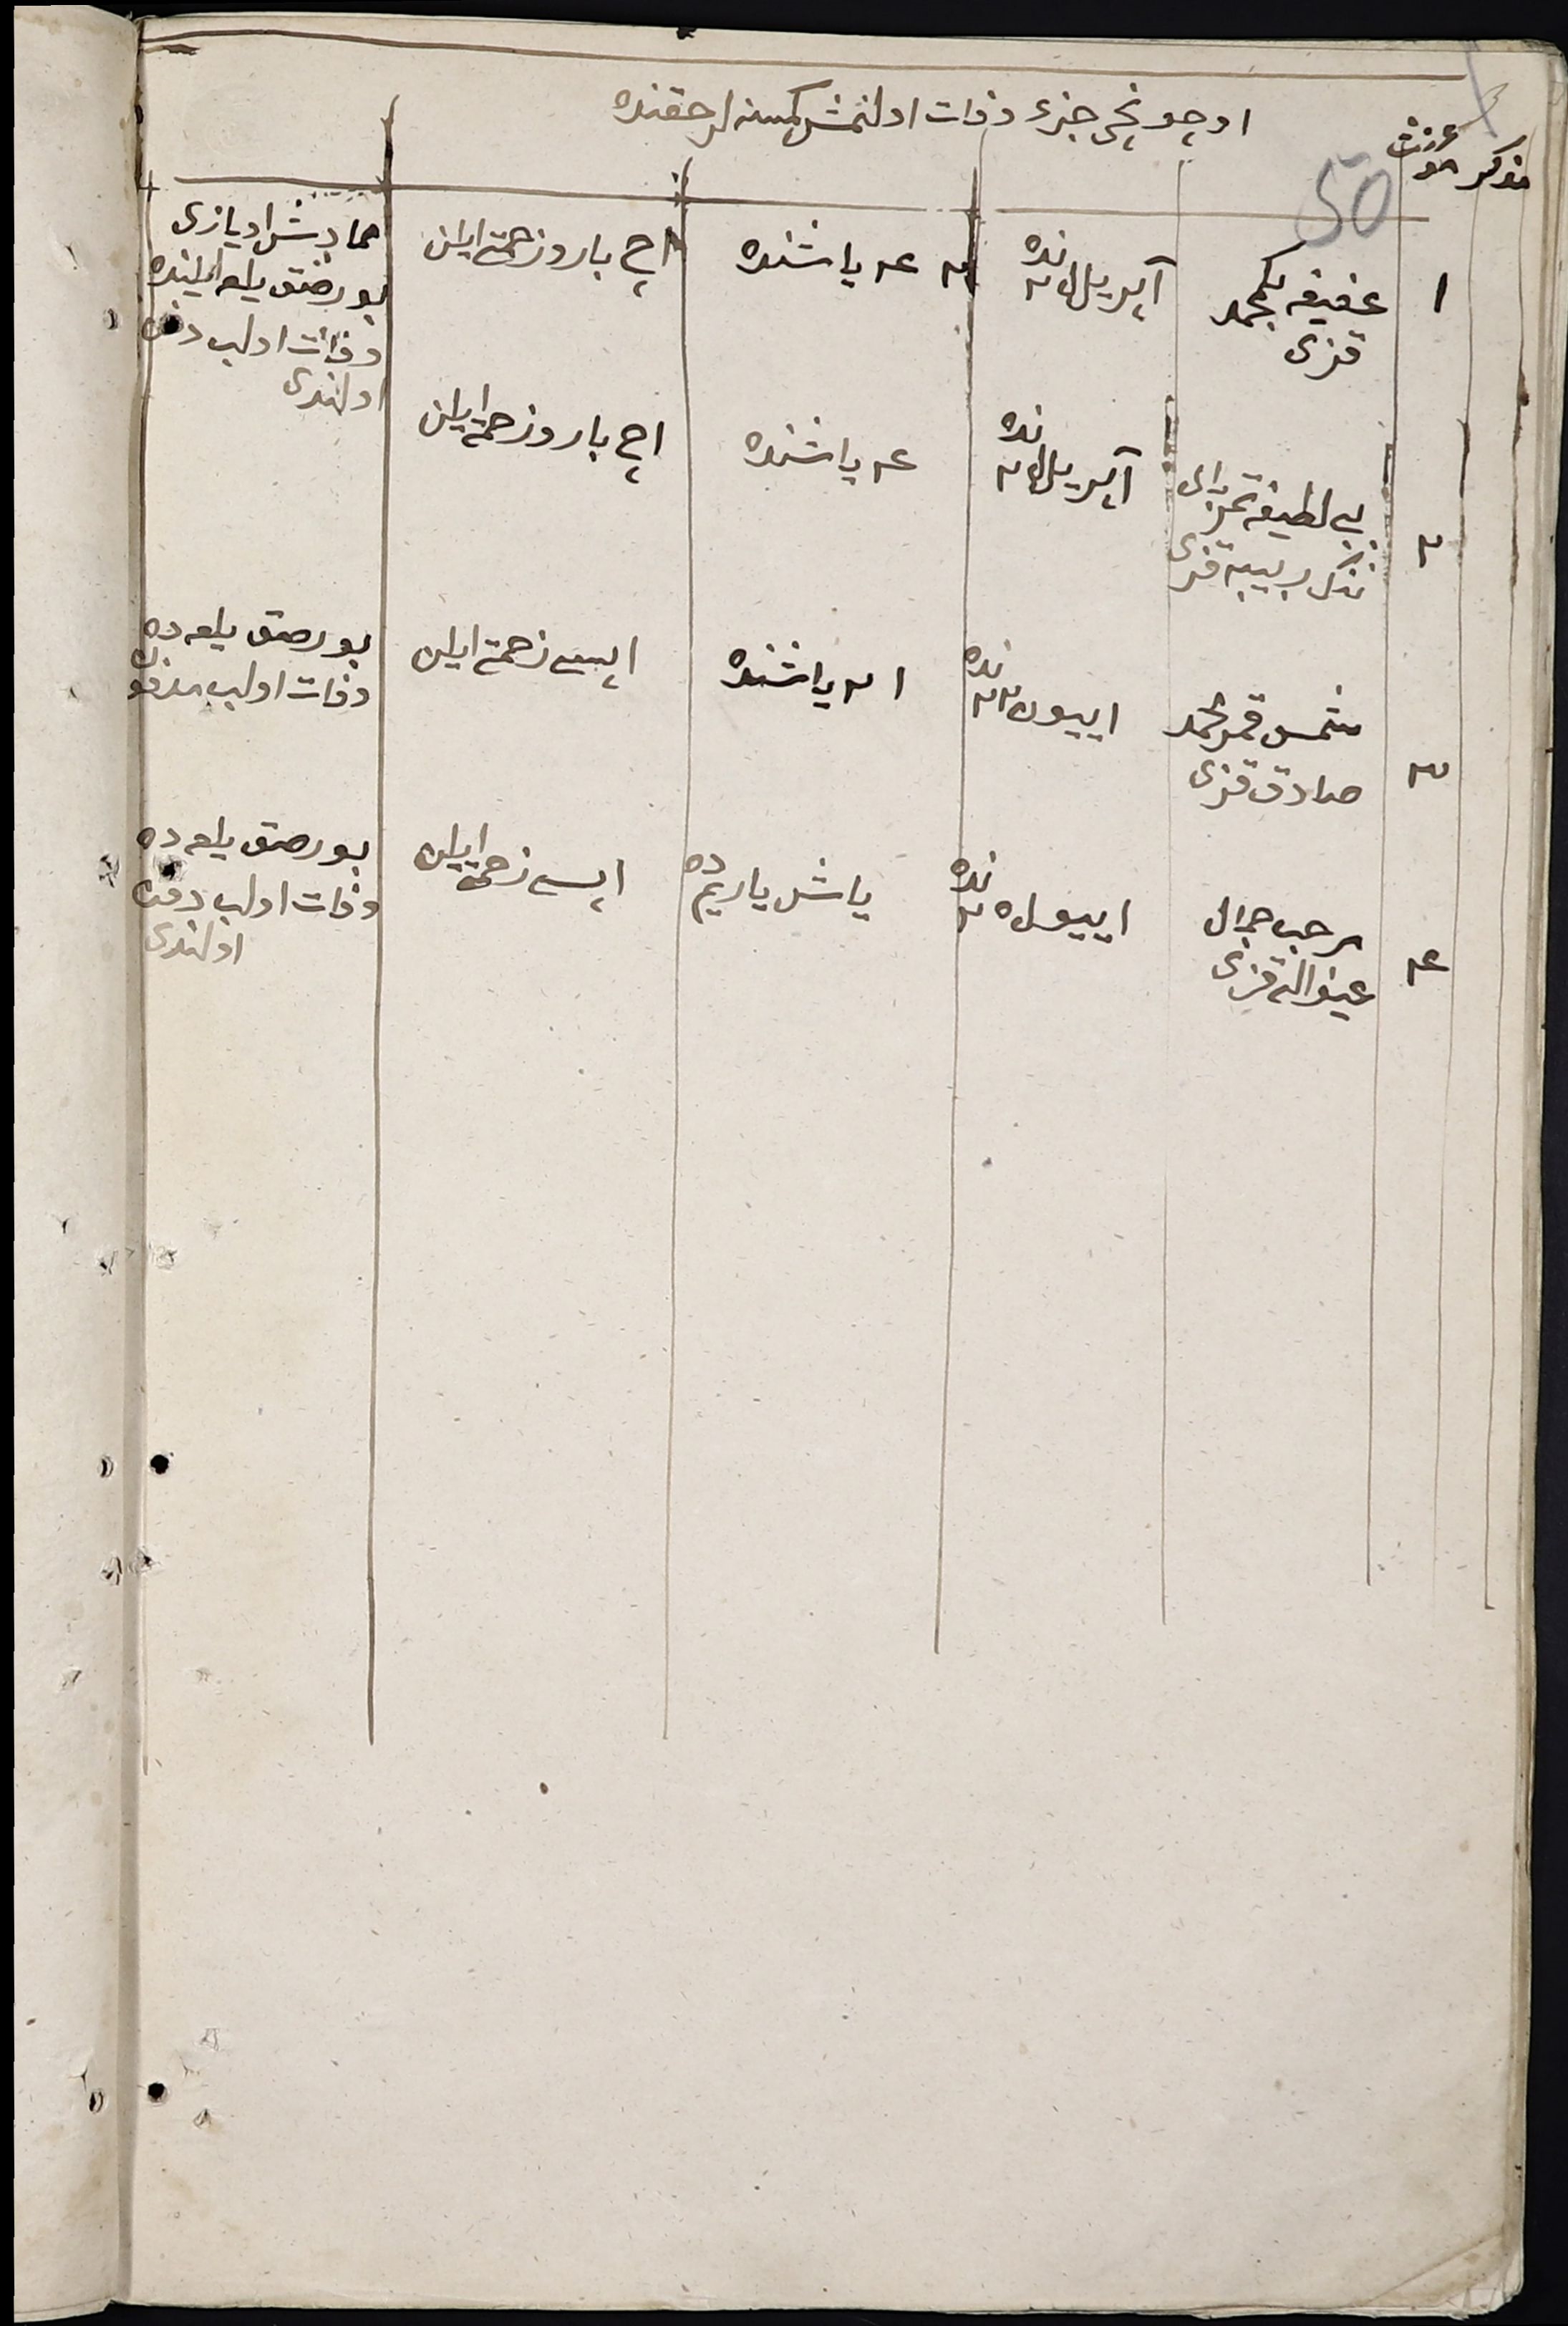 اوچونچی جزء وفات اولنمش کمسنه لر حقنده
مذکر مؤنث
50
۱
عفیفه بکمحمد
قزی
آپریل ۲ نده
۴ یاشنده
اچ باروزحمتی ایلن
بورصق یلعه ایلینده
وفات اولب دفن
اولندی
۲
بی لطیفه
ربیبه قزی
آپریل ۲ نده
۴ یاشنده
اچ باروزحمتی ایلن
۳
شمس قمر محمد
صادق قزی
اییون ۲۲ نده
۱۲ یاشنده
ایسی زحمتی ایلن
بورصق یلعه ده
وفات اولب مدفون
۴
مرحب جمال
عینوالله قزی
اییول ۲۵ نده
یاش یاریم ده
ایسی زحمتی ایلن
بورصق یلعه ده
وفات اولب دفن
اولندی